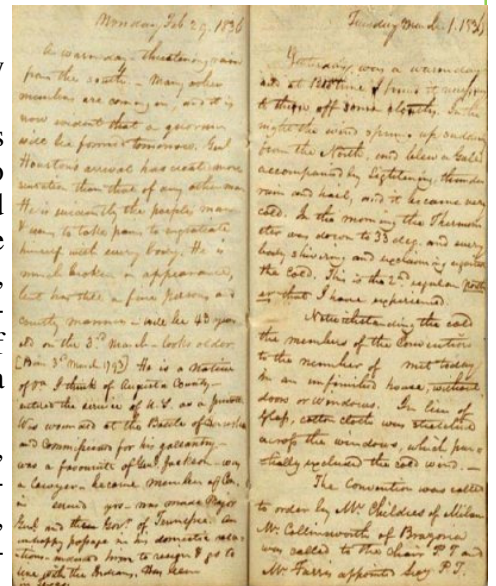 Monday Feb. 29. 1836
A warm day - threatening rain
from the south - Many other
members are coming in, and it is
now evident that a quorum
will be formed tomorrow. Genl
Houston's arrival has created more
sensation than that of any other man
He is evidently the people's man
& seems to take pains to ingratiate
himself with every body. He is
much broken in appearance,
but has still a fine person and
courtly manners - will be 43 years
old on the 3rd March - looks older.
[Born 3rd March 1793] He is a native
of Va. I think of Augusta County -
entered the service of U.S. as a private
Was wounded at the Battle of
and Commissioned for his gallantry -
was a favourite of Genl. Jackson - was
a lawyer - became member of Con.
in several was made Major
Genl. and then Govr. of Tennessee. An
unhappy passage in his domestic rela-
tions induced him to resign & go to
live with the Indians. Has been
Tuesday March 1. 1836
Yesterday was a warm day
and at bed time I found it necessary
to throw off some clothing. In the
night the wind sprung up suddenly
from the North, and blew a Gale
accompanied by lightening, thunder
rain and hail, and it became very
cold. In the morning the Thermom
eter was down to 33 deg. and every
body shivering and exclaiming against
the cold. This is the 2nd regular North
er that I have experienced.
Notwithstanding the cold
the members of the Convention
to the number of met today
in an unfinished house, without
doors or windows. In lieu of
Glass, cotton cloth was stretched
across the windows, which par-
tially excluded the cold wind. -
The Convention was called
to order by Mr. Childress of Milam
Mr. Collinsworth of Brazoria
was called to the chair P.T and
Mr. Farris appointd Secy. P.T.